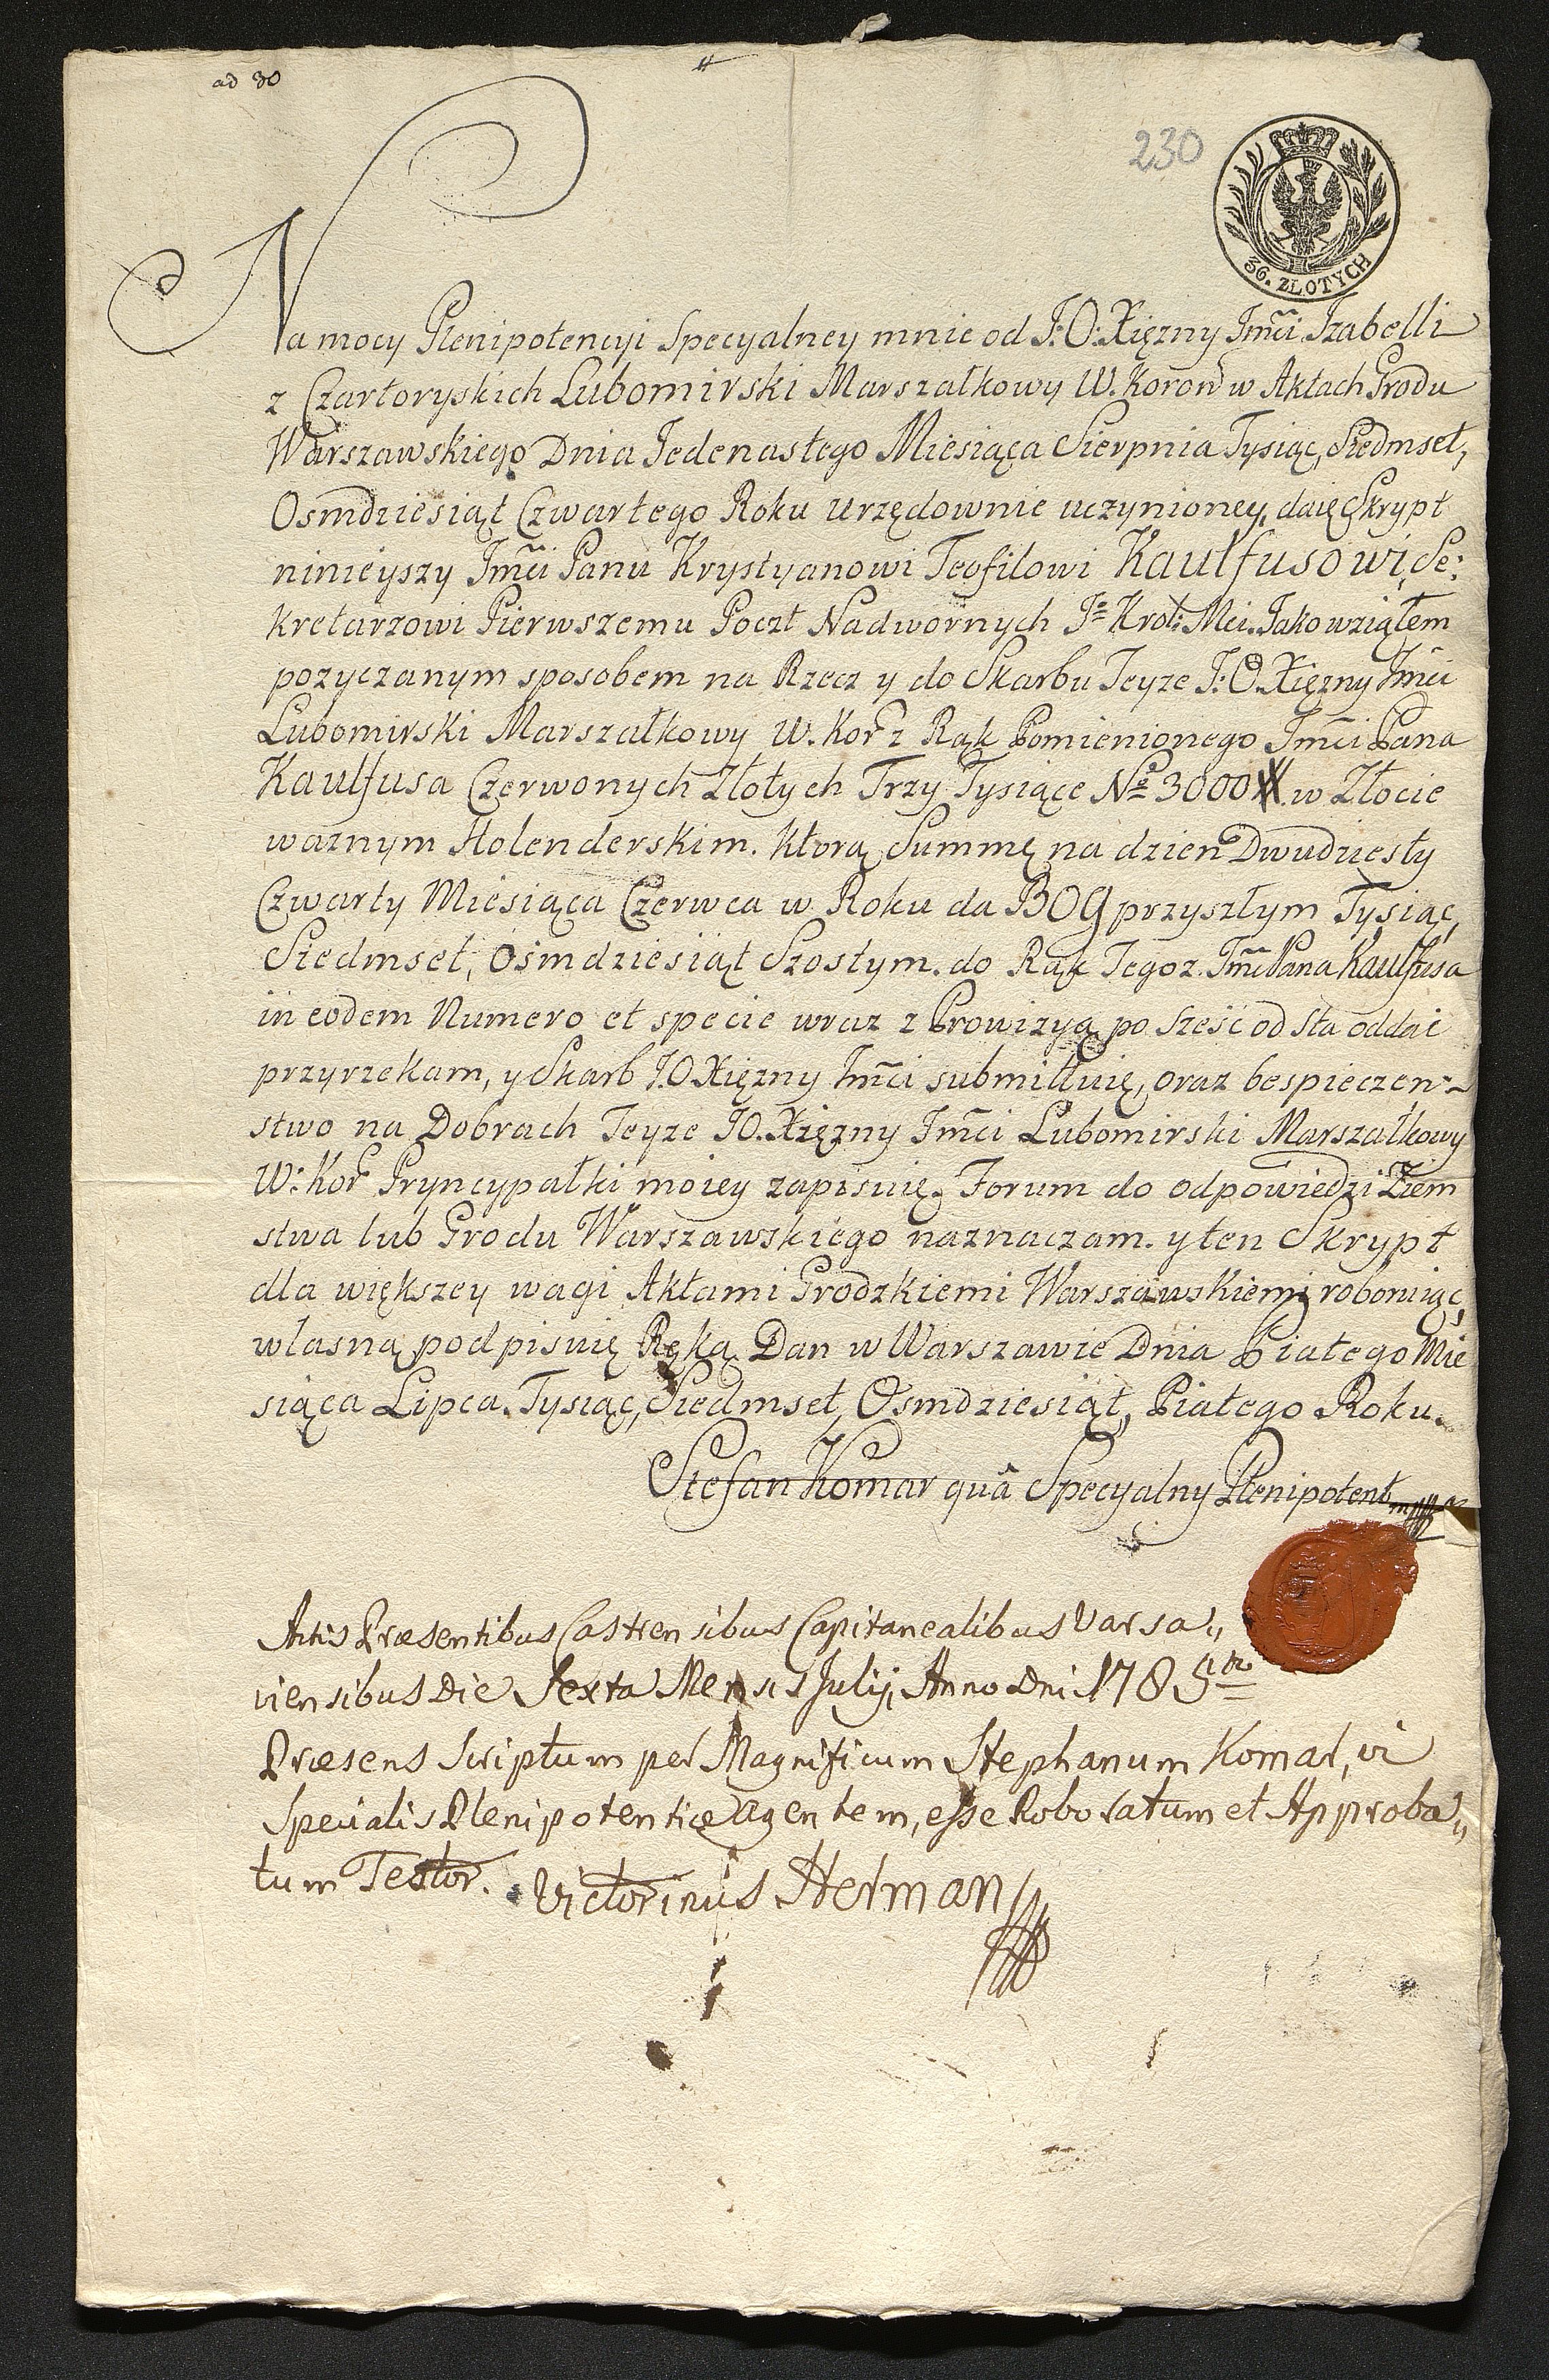 ad 30
230
36. ZŁOTYCH
Na mocy Plenipotencyi Specyalney mnie od J:O: Xięzny Jmći Izabelli
z Czartoryskich Lubomirski Marszałkowy W. Koron̄ w Aktach Grodu
Warszawskiego Dnia Jedenastego Miesiąca Sierpnia Tysiąc, Siedmset,
Osmdziesiąt Czwartego Roku urzędownie uczynioney, daię Skrypt
ninieyszy Jmći Panu Krystyanowi Teofilowi Kaulfusowi, Se:
kretarzowi Pierwszemu Poczt Nadwornych J= Krol: Mci. Jako wziąłem
pozyczanym sposobem na Rzecz y do Skarbu Teyze J:O. Xięzny Jmći
Lubomirski Marszałkowy W. Kor̄ z Rąk Pomienionego Jmći Pana
Kaulfusa Czerwonych Złotych Trzy Tysiące No 3000 w Złocie
waznym Holenderskim. Którą Summę na dzien Dwudziesty
Czwarty Miesiąca Czerwca w Roku da BOG przyszłym Tysiąc,
Siedmset, Osmdziesiąt Szostym. do Rąk Tegoz Jmći Pana Kaulfusa
in eodem Numero et specie wraz z Prowizyą po sześć od sta oddać
przyrzekam, y Skarb J.O Xięzny Jmći submittuię, oraz bespieczen-
stwo na Dobrach Teyze JO. Xięzny Jmći Lubomirski Marszałkowy
W: Kor̄ Pryncypałki moiey zapisuię. Forum do odpowiedzi Ziem
stwa lub Grodu Warszawskiego naznaczam. y ten Skrypt
dla większey wagi Aktami Grodzkiemi Warszawskiemi roboruiąc,
własną podpisuię Ręką Dan w Warszawie Dnia Piątego Mie
siąca Lipca. Tysiąc, Siedmset, Osmdziesiąt, Piątego Roku.
Stefan Komar quâ Specyalny Plenipotent mpp
Actis Præsentibus Castrensibus Capitanealibus Varsa„
viensibus Die Sexta Mensis Julij, Anno Dni 1785to
Præsens Scriptum per Magnificum Stephanum Komar, vi
Specialis Plenipotentiæ agentem, esse Roboratum et Approba„
tum Testor. Victorinus Herman